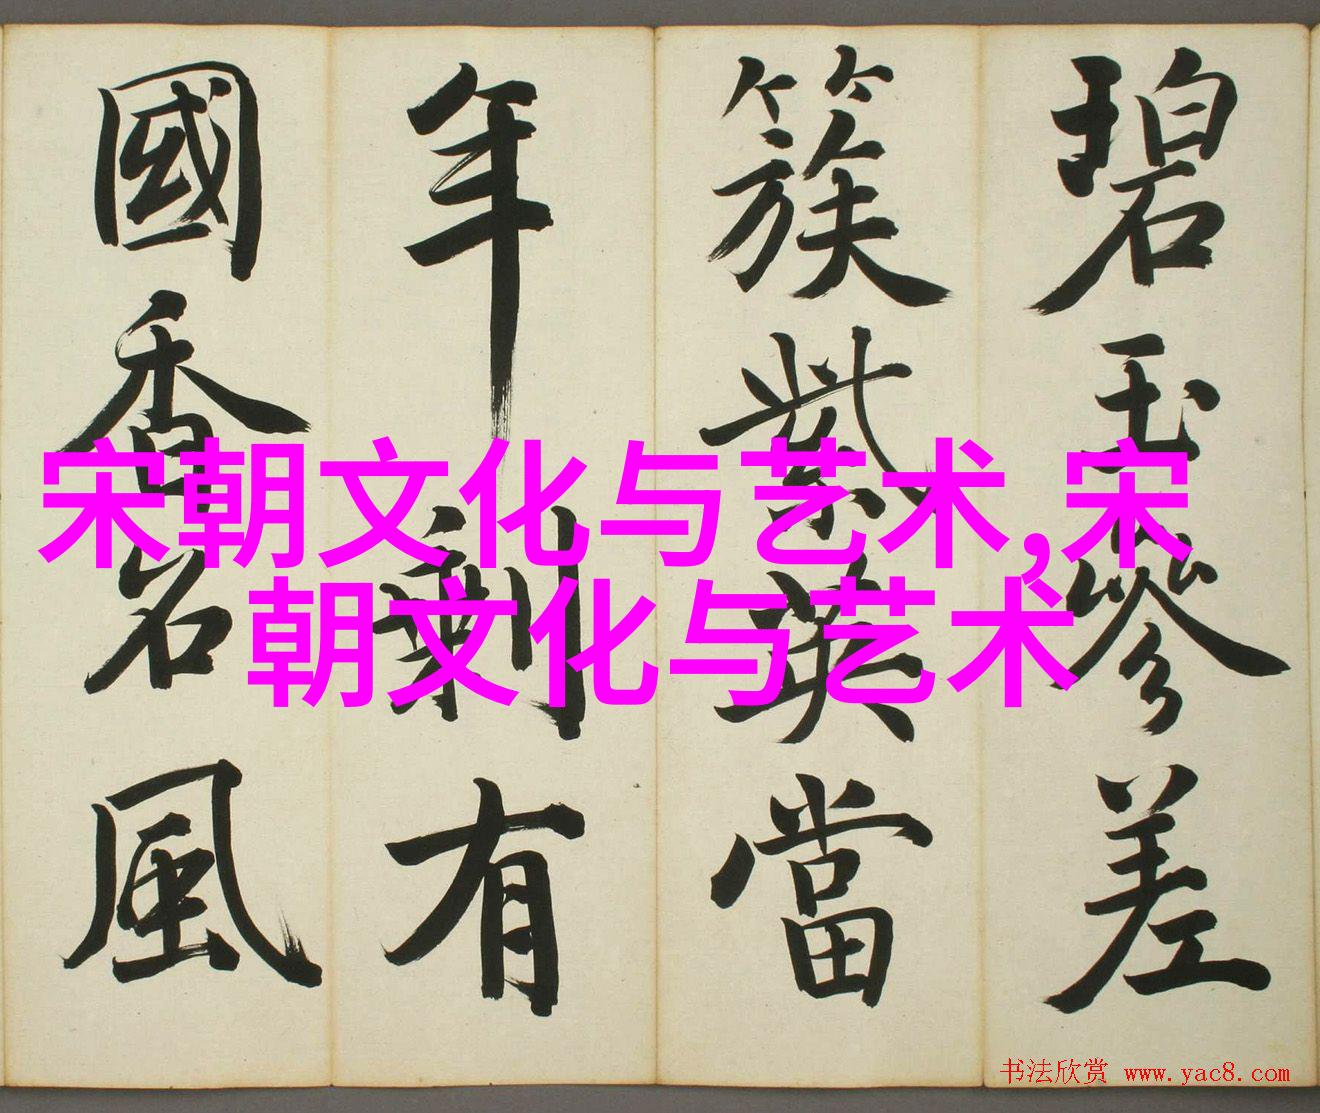 碧玉參差
簇紫英當
年剩有
國香名風
宋朝文化与艺术,宋
朝文化与艺术
书法欣赏 www.yac8.com